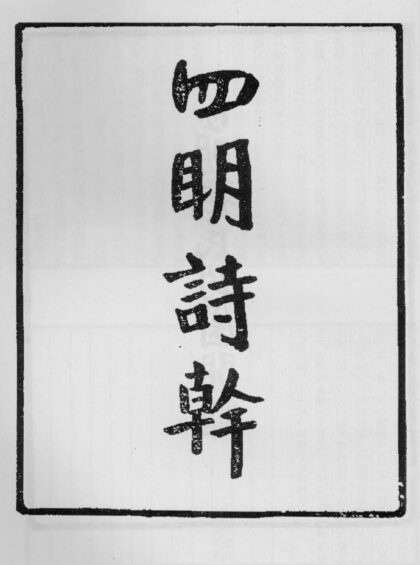 四明詩幹